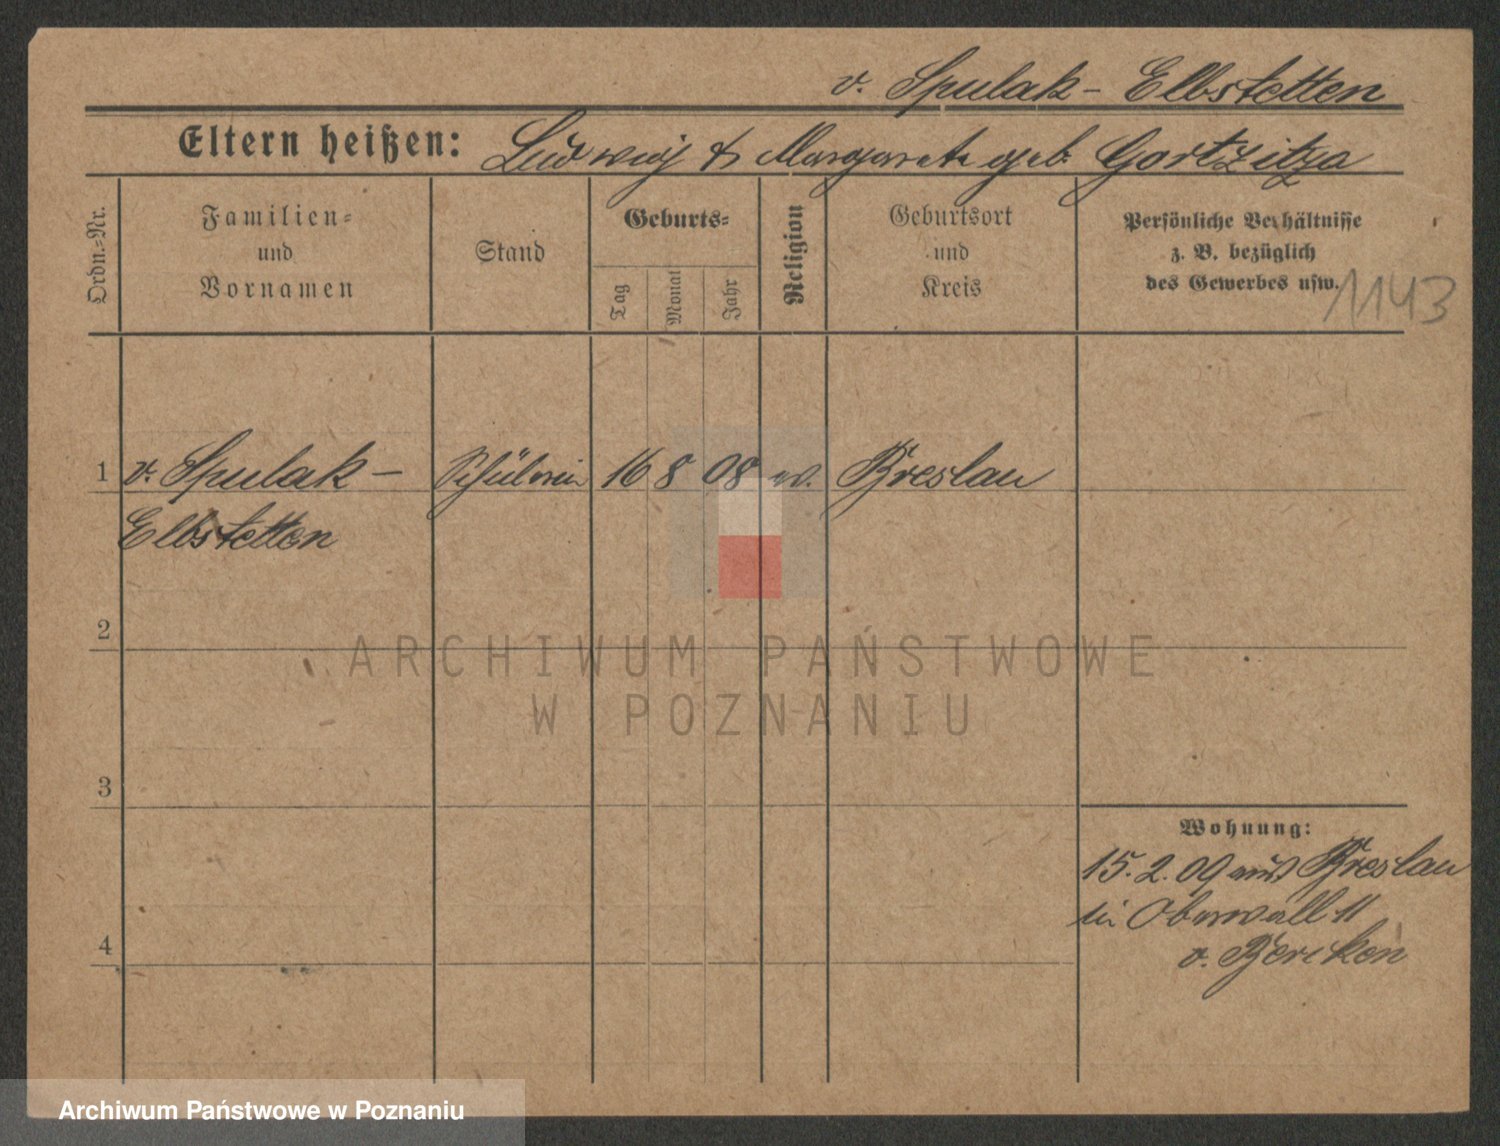 v. Spulak- Elbstetten
Eltern heißen: Ludwig & Margarete geb. Gortzitza
Ordn.=Nr.
Familien=
und
Vornamen
Stand
Geburts=
Tag
Monat
Jahr
Religion
Geburtsort
und
Kreis
Persönliche Verhältnisse
z. B. bezüglich
des Gewerbes usw.
1143
1 v. Spulak- Schülerin 16 8 08 ev. Breslau
Elbstetten
2
ARCHIWUM PAŃSTWOWE
W POZNANIU
3
Wohnung:
15. 2. 09 aus Breslau
Oberwall 11
4
v. Bercken
Archiwum Państwowe w Poznaniu